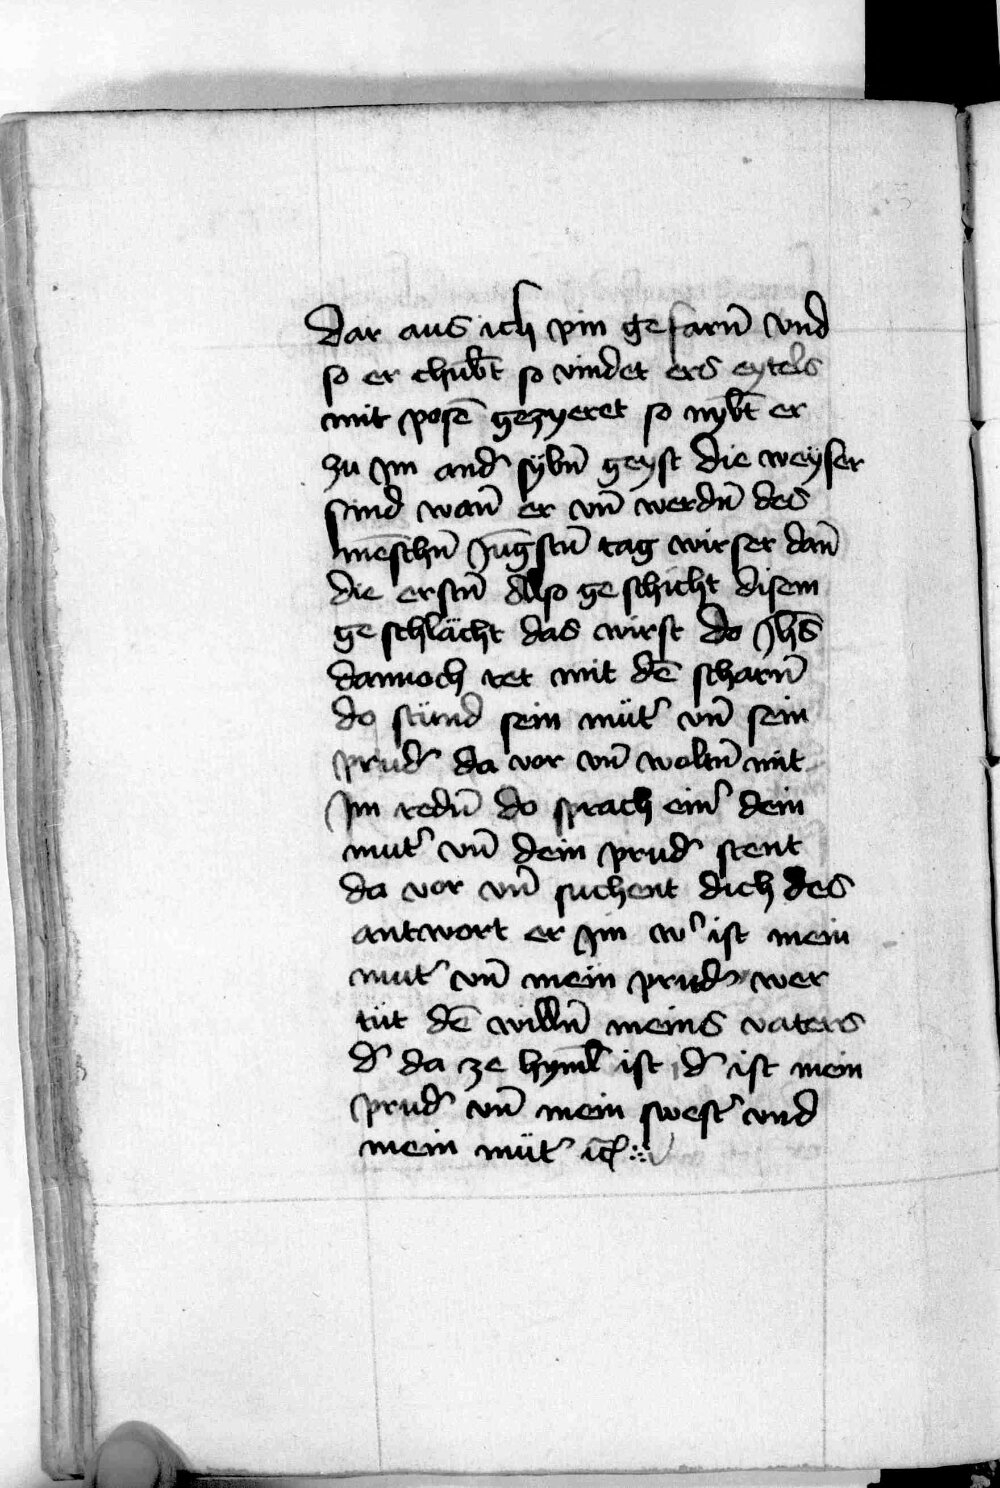 dar aus ich pin gefarn̄ vnd
so er chūbt so vindet ers eytels
mit posē gezyeret so nȳbt er
zu Im and᷑ sÿbn̄ geyst die weÿser
sind wan̄ er vn̄ werdn̄ des
mēschn̄ Jūgstn̄ tag wirser dan̄
die erstn̄ Also geschicht disem
geschlächt das wirst do Jhs̄
dannoch ret mit dē scharn̄
do stünd sein müt᷑ vn̄ sein
prud᷑ da vor vn̄ woltn̄ mit
Im redn̄ do sprach ein᷑ dein
mut᷑ vn̄ dein prud᷑ stent
da vor vn̄ suchent dich des
antwort er Im w᷑ ist mein
mut᷑ vn̄ mein prud᷑ wer
tüt dē willn̄ meins vaters
d᷑ da ze hyml̄ ist d᷑ ist mein
prud᷑ vn̄ mein swest᷑ vnd
mein müt᷑ ic̄